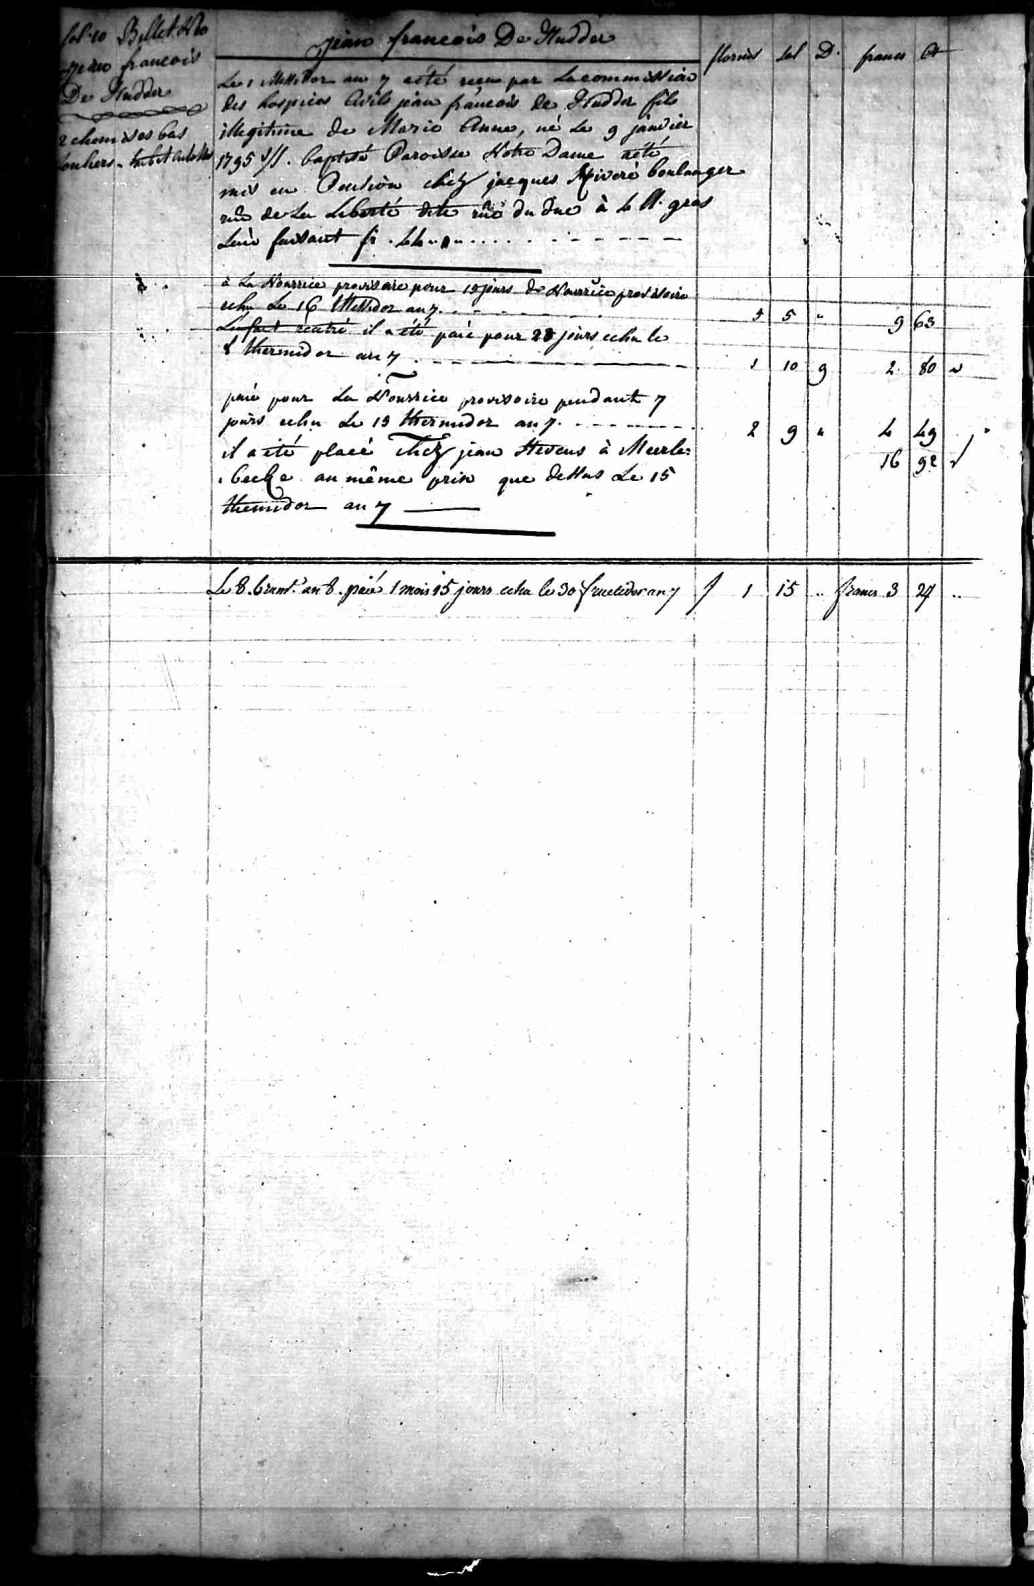 fol. 10 Billet N° 20
Jean francois
De Nudder
2 chemises bas
souliers - habit culotte
Jean francois De Nudder
florins sol D. francs Ct
Le 1 Messidor an 7 a été recu par La commission
des hospices Civils jean francois de Nudder fils
illegitime de Marie Anne, né Le 9 janvier
1795 v/s. baptisé Paroisse Notre Dame a été
mis en Pension chéz jacques boulanger
rue de La Liberté dite rue du Duc à gros
faisant fr. 44
à La Nourrice provisoire pour 15 jours de Nourrice provisoire
echu Le 16 Messidor an 7. 5 5 " 9 63
Lenfant rentré il a été paié pour 28 jours echu le
8 thermidor an 7 1 10 9 2 80
paié pour La Nourrice provisoire pendant 7
jours echu Le 15 thermidor an 7. 2 9 " 4 49
il a été placé Chéz jean Stevens à Meerle= 16 92
becke au même prix que dessus Le 15
thermidor an 7
Le 8. brum.r an 8. paié 1 mois 15 jours echu le 30 fructidor an 7 f 1 15 .. francs 3 27 ..